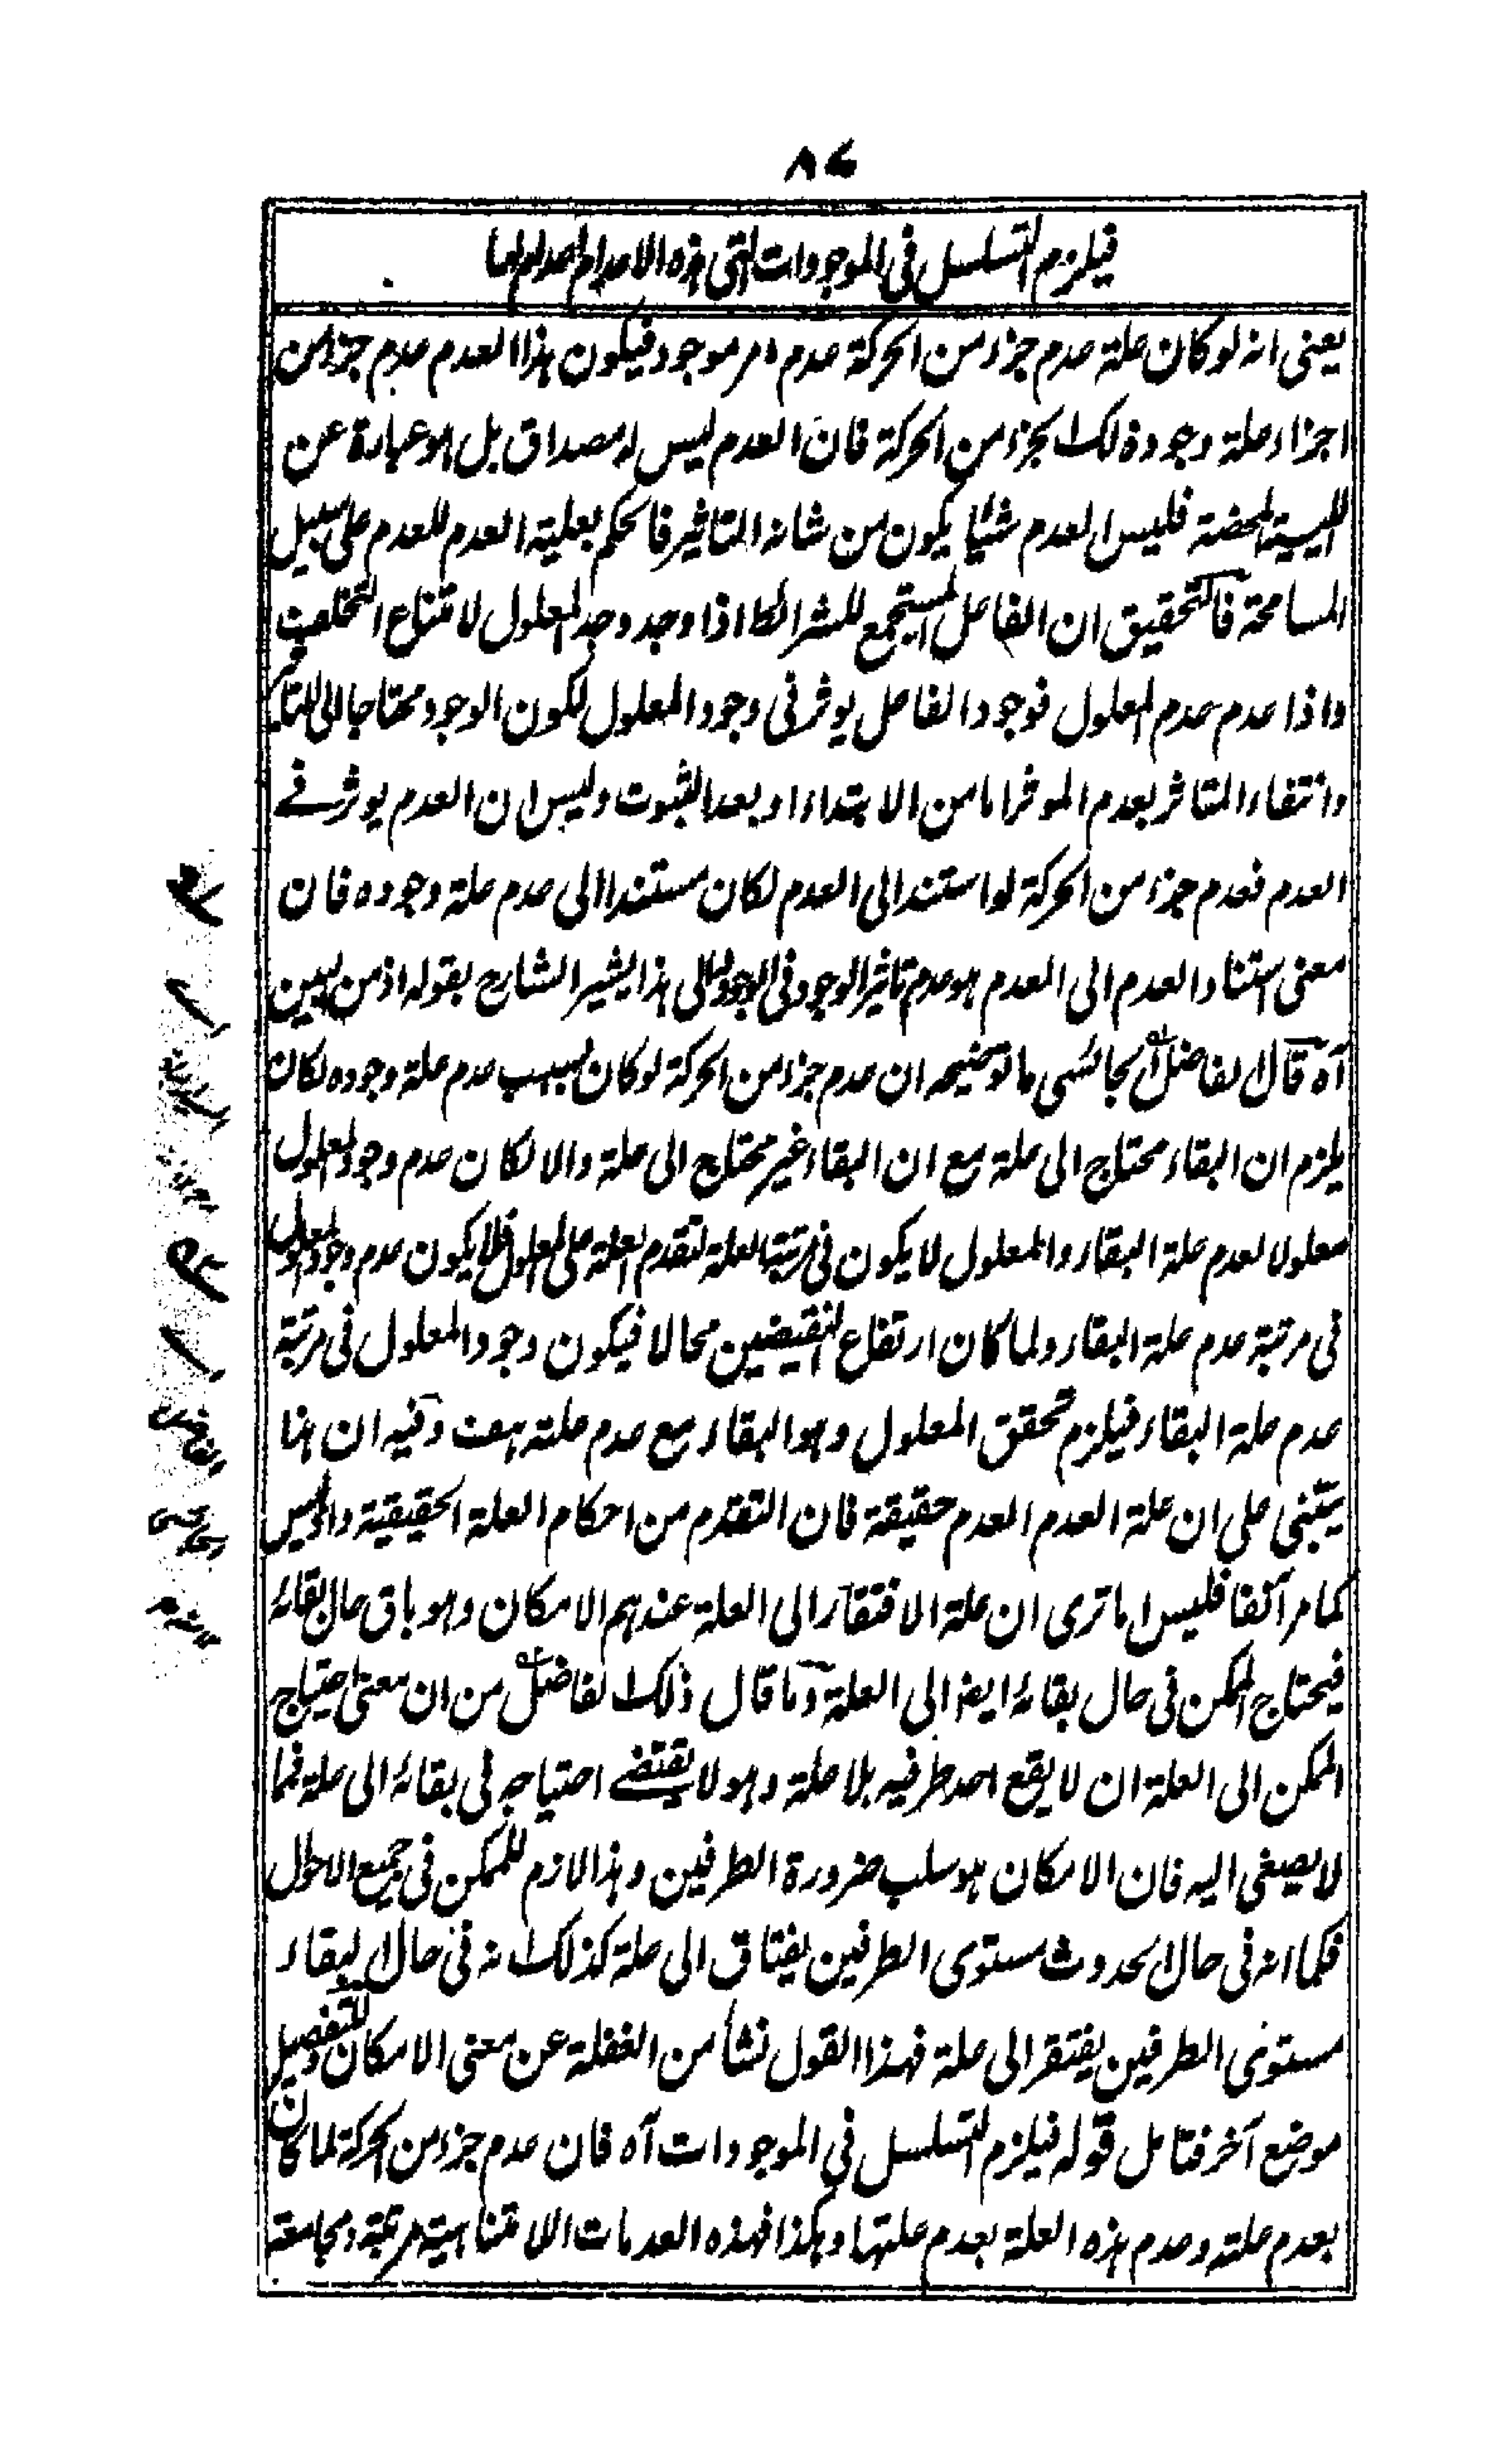 ٨٧
فيلزم التسلسل فى الموجودات التى هذه الاعدام اعدام لها
يعنى انه لو كان علة عدم جزء من الحركة عدم امر موجود فيكون هذا العدم عدم جزء من
اجزاء علة وجود ذلك الجزء من الحركة فان العدم ليس له مصداق بل هو عبارة عن
الليسية المحضة فليس العدم شيئا يكون من شانه التاثير فالحكم بعلية العدم للعدم على سبيل
المسامحة فالتحقيق ان الفاعل المستجمع للشرائط اذا وجد وجد المعلول لامتناع التخلف
واذا عدم عدم المعلول فوجود الفاعل يوثر فى وجود المعلول لكون الوجود محتاجا الى التاثير
وانتفاء التاثر بعدم الموثر اما من الابتداء او بعد الثبوت وليس ان العدم يوثر فے
العدم فعدم جزء من الحركة لو استند الى العدم لكان مستندا الى عدم علة وجوده فان
معنى استناد العدم الى العدم هو عدم تاثير الوجود فى الوجود والى هذا يشير الشارح بقوله اذ من البين
آه قال الفاضل البجائسى ما توضيحه ان عدم جزء من الحركة لو كان بسبب عدم علة وجوده لكان
يلزم ان البقاء محتاج الى علة مع ان البقاء غير محتاج الى علة والا لكان عدم وجود المعلول
معلولا لعدم علة البقاء والمعلول لا يكون فى مرتبة العلة لتقدم العلة على المعلول فلا يكون عدم وجود المعلول
فى مرتبة عدم علة البقاء ولما كان ارتفاع النقيضين محالا فيكون وجود المعلول فى مرتبة
عدم علة البقاء فيلزم تحقق المعلول وهو البقاء مع عدم علته هف وفيه ان هذا
يبتنى على ان علة العدم العدم حقيقة فان التقدم من احكام العلة الحقيقية واذ ليس
كما مر آنفا فليس اما ترى ان علة الافتقار الى العلة عندهم الامكان وهو باق حال بقائه
فيحتاج الممكن فى حال بقائه ايضا الى العلة وما قال ذلك الفاضل من ان معنى احتياج
الممكن الى العلة ان لا يقع احد طرفيه بلا علة وهو لا يقتضے احتياجه فى بقائه الى علة فمما
لا يصغى اليه فان الامكان هو سلب ضرورة الطرفين وهذا لازم للممكن فى جميع الاحوال
فكما انه فى حال الحدوث مستوى الطرفين يفتاق الى علة كذلك انه فى حال البقاء
مستوى الطرفين يفتقر الى علة فهذا القول نشأ من الغفلة عن معنى الامكان وللتفصيل
موضع آخر فتامل قوله فيلزم التسلسل فى الموجودات آه فان عدم جزء من الحركة لما كان
بعدم علته وعدم هذه العلة بعدم علتها وهكذا فهذه العدمات اللامتناهية مرتبة ومجامعة